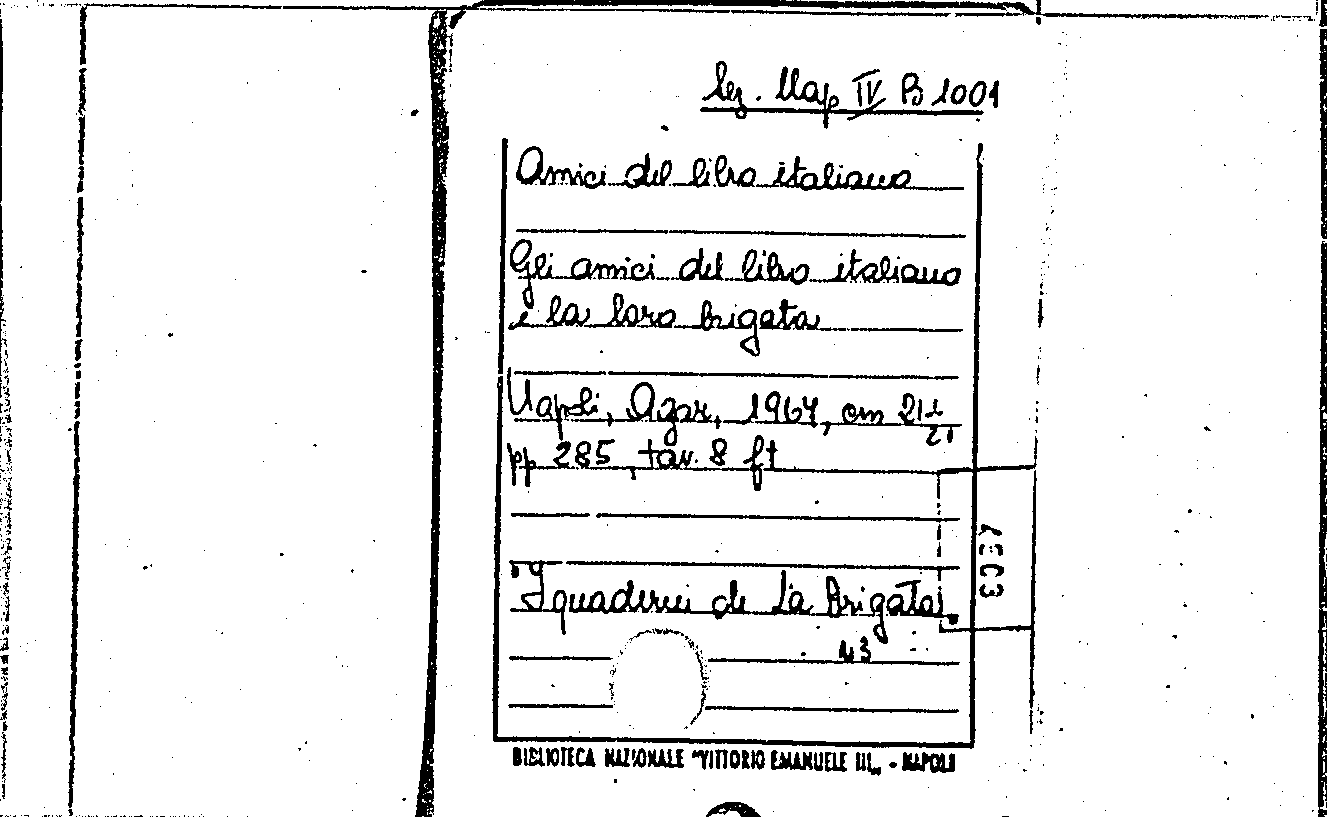 Sez. Nap IV B 1001
Amici del libro italiano
Gli amici del libro italiano
e la loro brigata
Napoli, Agar, 1967, cm 21½
21
pp 285, tav. 8 ft
"I quaderni de La Brigata"
BIBLIOTECA NAZIONALE "VITTORIO EMANUELE III„ - NAPOLI